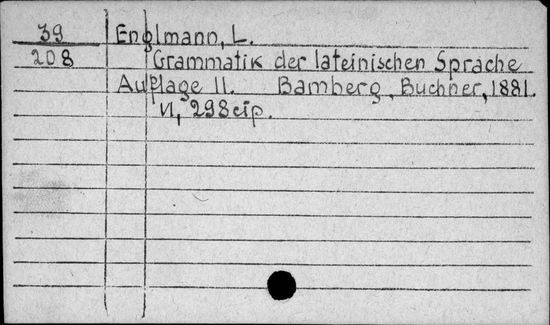 39 Englmann, L.
208 Grammatik der lateinischen Sprache
Auflage 11. Bamberg, Buchner, 1881.
VI, 298 cip.